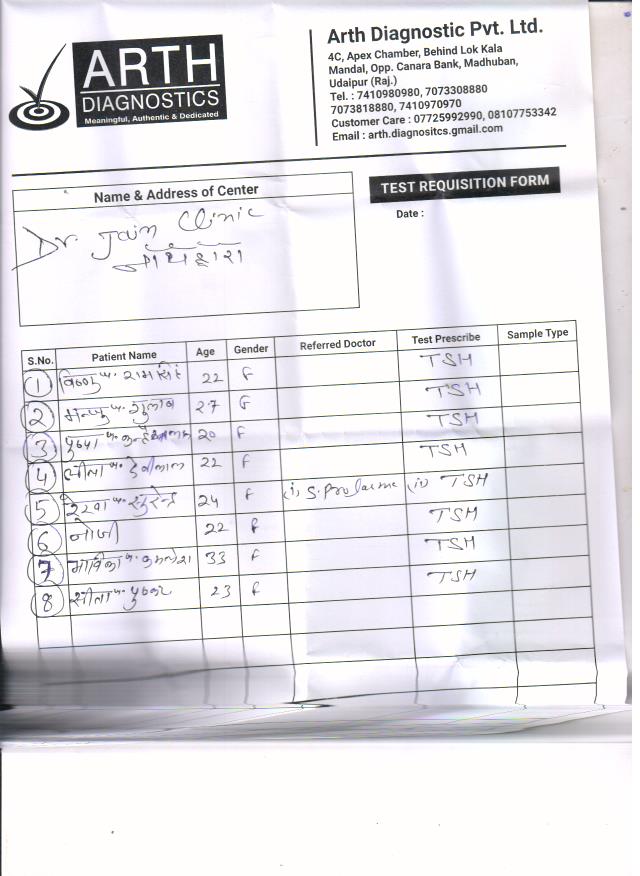 ARTH
DIAGNOSTICS
Meaningful, Authentic & Dedicated
Arth Diagnostic Pvt. Ltd.
4C, Apex Chamber, Behind Lok Kala
Mandal, Opp. Canara Bank, Madhuban,
Udaipur (Raj.)
Tel. : 7410980980, 7073308880
7073818880, 7410970970
Customer Care : 07725992990, 08107753342
Email : arth.diagnositcs.gmail.com
Name & Address of Center
TEST REQUISITION FORM
Date :
Dr. Jain Clinic
S.No. Patient Name Age Gender Referred Doctor Test Prescribe Sample Type
1 22 F TSH
2 27 F TSH
3 20 F TSH
4 सीता 22 F TSH
5 24 F (i) S. Prolactine (ii) TSH
6 22 F TSH
7 33 F TSH
8 सीता 23 F TSH